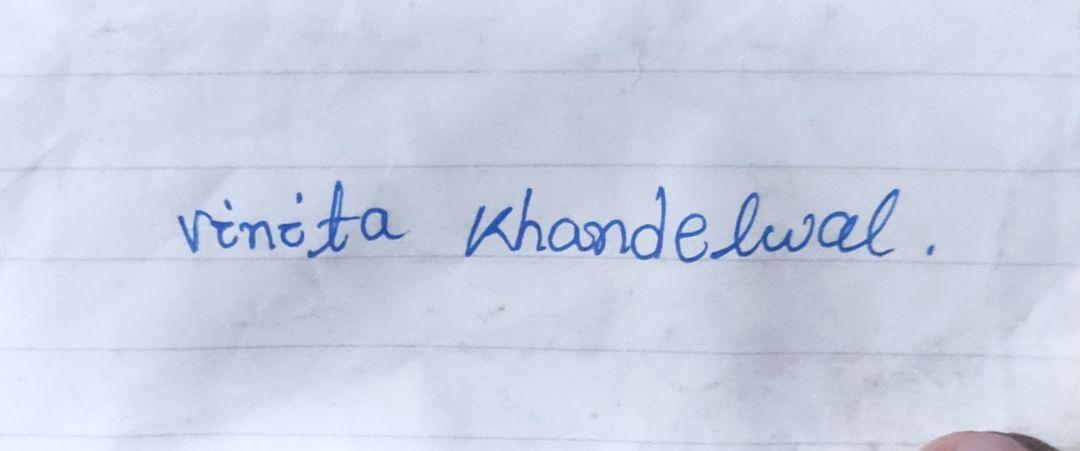 vinita Khandelwal.